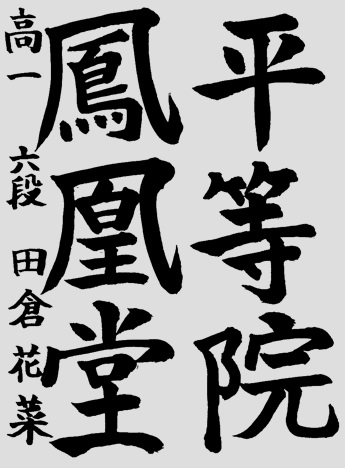 平等院
鳳凰堂
高一 六段 田倉花菜